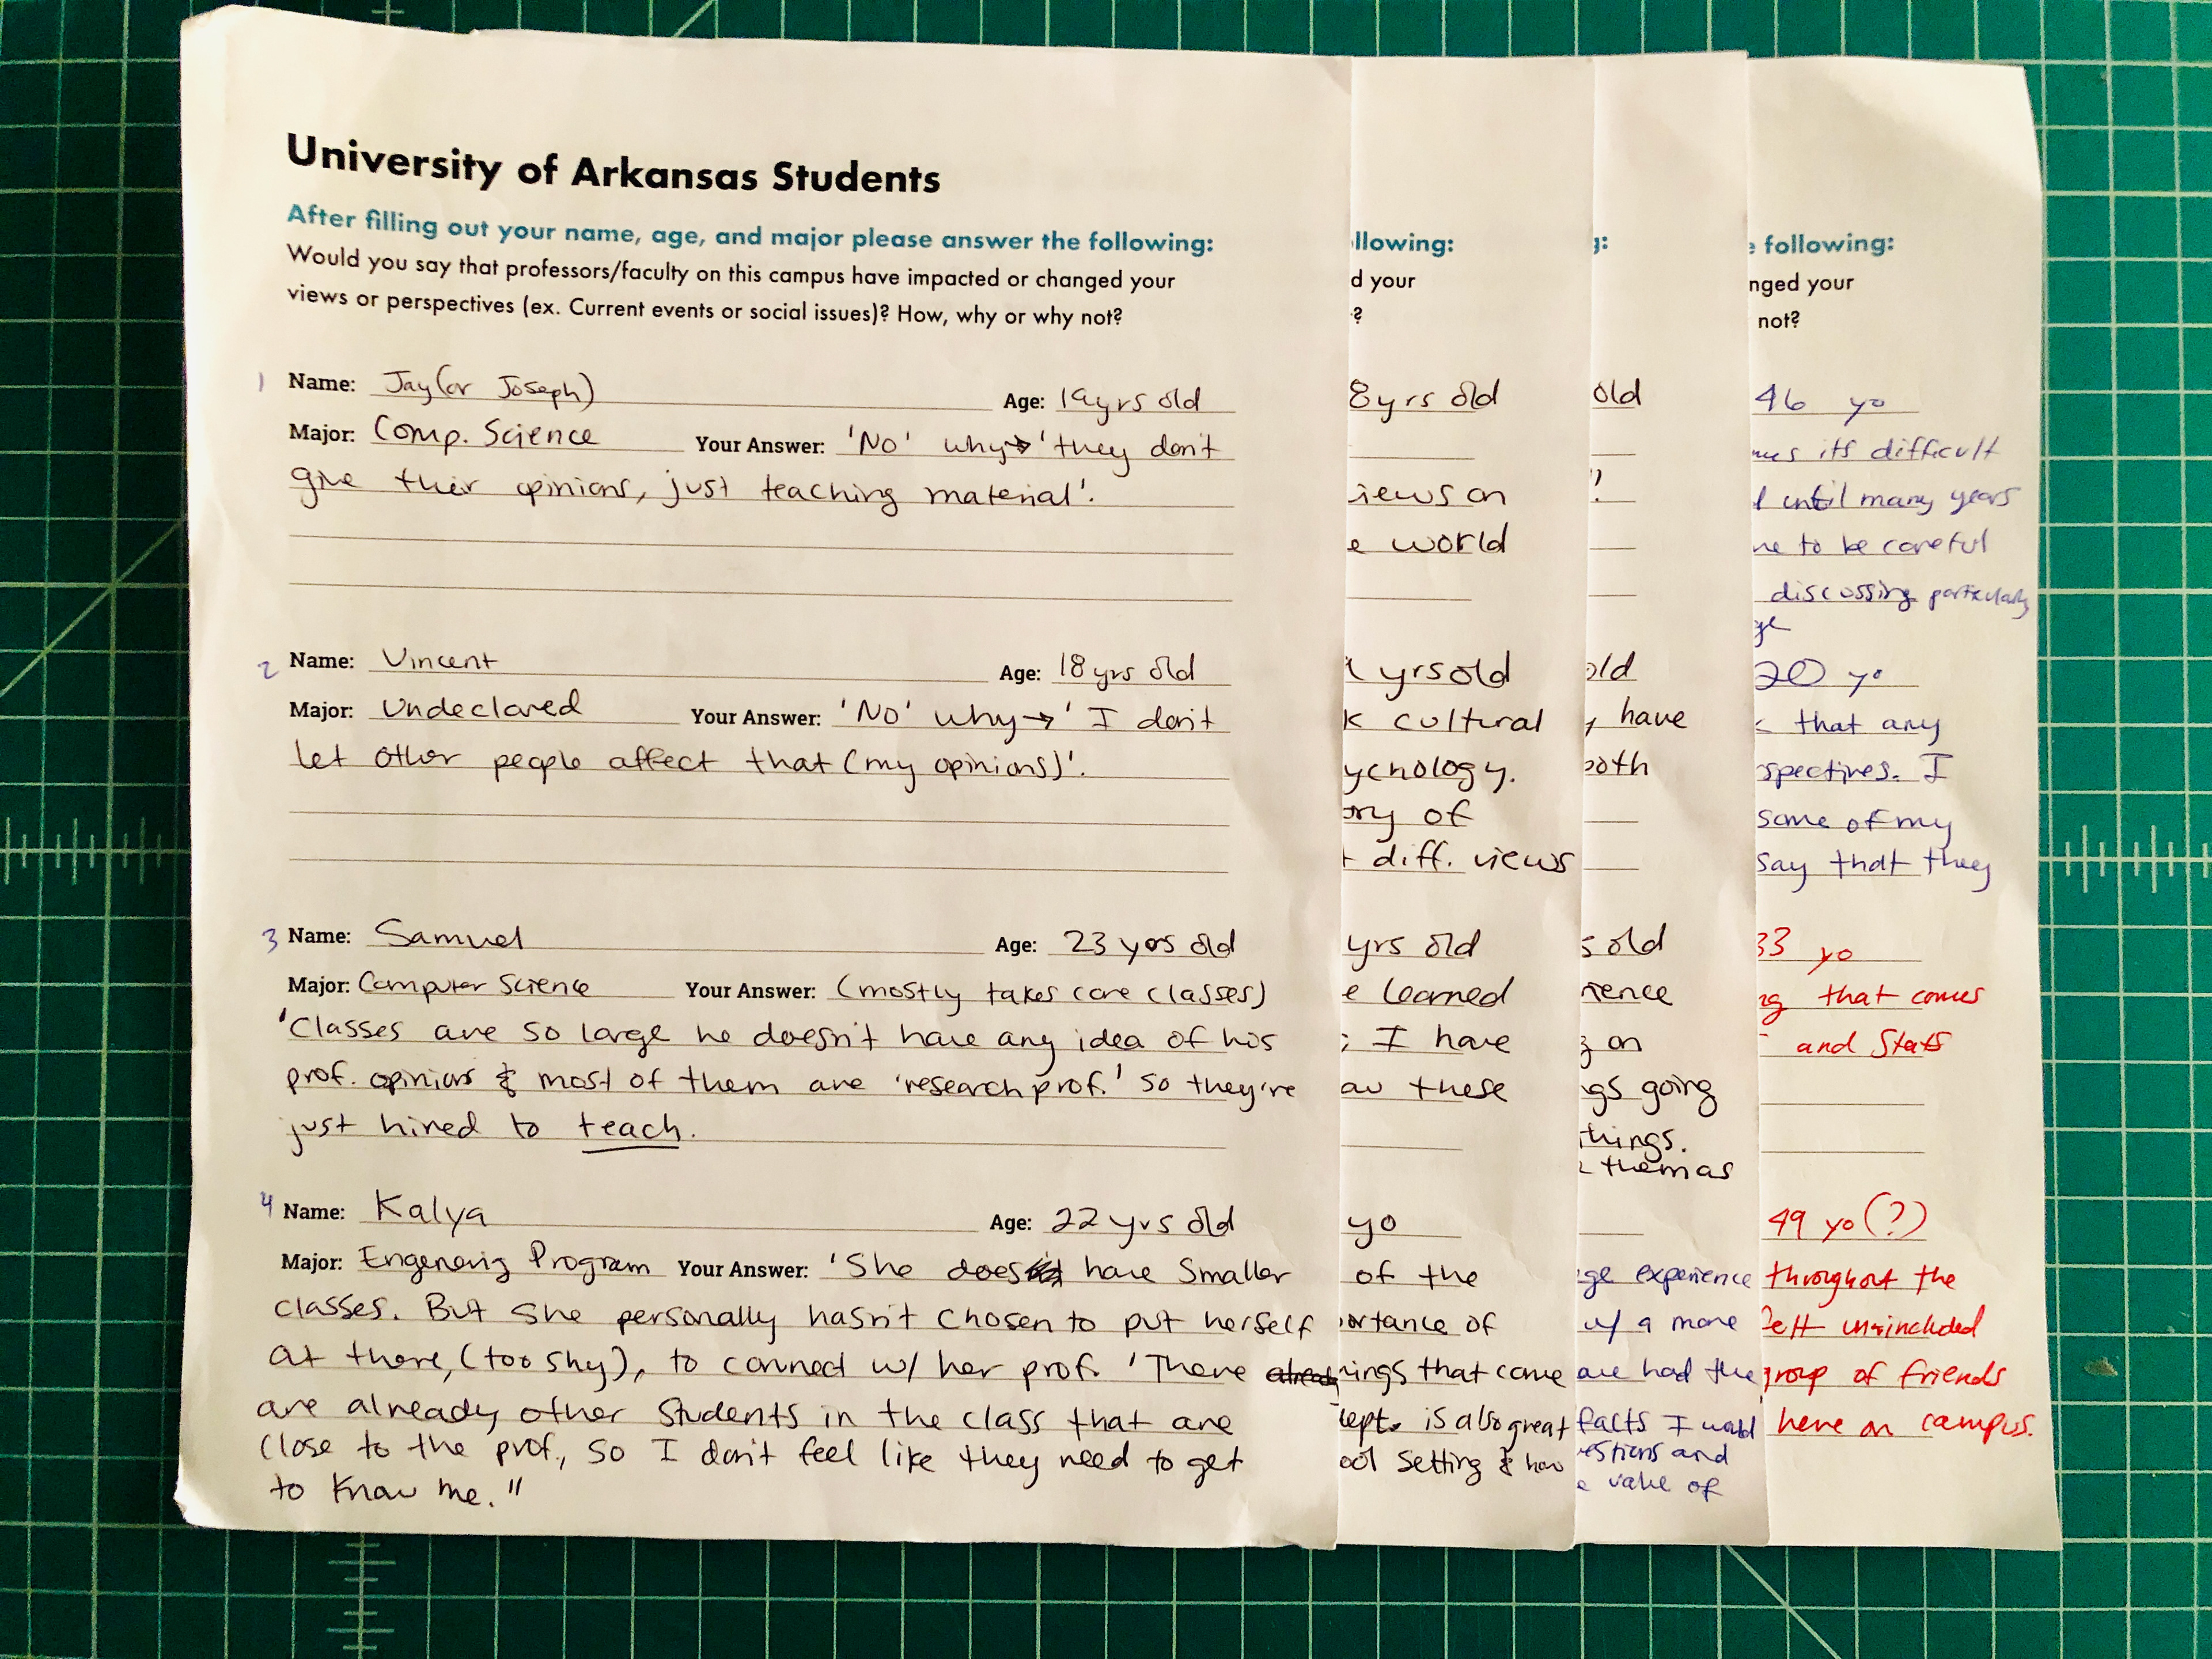 University of Arkansas Students
After filling out your name, age, and major please answer the following:
Would you say that professors/faculty on this campus have impacted or changed your
views or perspectives (ex. Current events or social issues)? How, why or why not?
1 Name: Jay (or Joseph) Age: 19yrs old
Major: Comp. Science Your Answer: 'No' why→ 'they don't
give their opinions, just teaching material'.
2 Name: Vincent Age: 18yrs old
Major: Undeclared Your Answer: 'No' why→ 'I don't
let other people affect that (my opinions)'.
3 Name: Samuel Age: 23 yrs old
Major: Computer Science Your Answer: (mostly takes core classes)
'Classes are so large he doesn't have any idea of his
prof. opinions & most of them are 'research prof.' so they're
just hired to teach.
4 Name: Kalya Age: 22 yrs old
Major: Engenering Program Your Answer: 'She does have Smaller
classes. But she personally hasn't chosen to put herself
at there, (too shy), to connect w/ her prof. 'There
are already other students in the class that are
close to the prof., so I don't feel like they need to get
to know me."
llowing:
d your
?
8yrs old
iews on
e world
yrs old
k cultural
ychology.
ory of
t diff. views
yrs old
e learned
; I have
these
yo
of the
ortance of
ings that come
cept. is also great
ool setting & how
g:
old
"!
old
, have
both
s old
rience
g on
gs going
things.
them as
ge experience
w/ a more
ave had the
facts I would
estions and
e value of
e following:
nged your
not?
46 yo
mes its difficult
l until many years
me to be careful
discussing particularly
ge
20 yo
k that any
spectives. I
some of my
say that they
33 yo
ng that comes
and Stats
49 yo (?)
throughout the
felt unincluded
group of friends
here on campus.